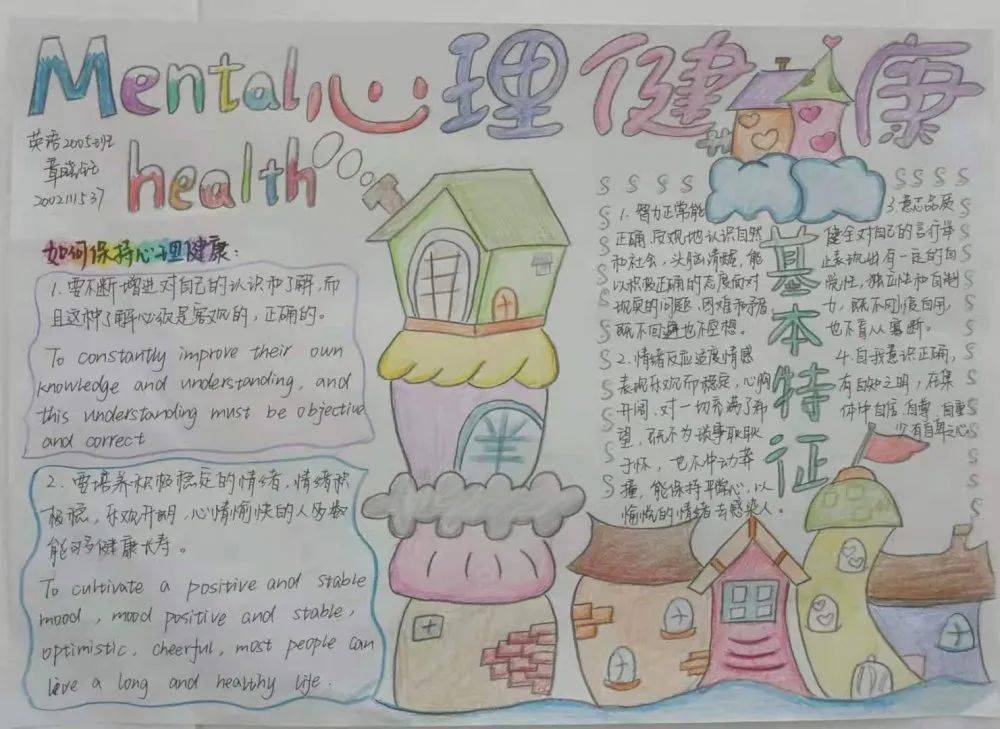 Mental 心理健康
health
英语2005班
2002111537
如何保持心理健康:
1. 要不断增进对自己的认识和了解,而
且这种了解必须是客观的,正确的。
To constantly improve their own
knowledge and understanding, and
this understanding must be objective
and correct
2. 要培养积极稳定的情绪,情绪积
极稳,乐观开朗,心情愉快的人多数
能够健康长寿。
To cultivate a positive and stable
mood, mood positive and stable,
optimistic, cheerful, most people can
live a long and healthy life.
基本特征
1. 智力正常能
正确、客观地认识自然
和社会,头脑清醒,能
以积极正确的态度面对
现实的问题、困难和矛盾
既不回避也不空想。
2. 情绪反应适度情感
表现乐观而稳定,心胸
开阔、对一切充满了希
望,既不为琐事耿耿
于怀,也不冲动莽
撞,能保持平常心,以
愉悦的情绪去感染人。
3. 意志品质
健全对自己的言行举
止表现出有一定的自
觉性,独立性和自制
力,既不刚愎自用,
也不盲从寡断。
4. 自我意识正确,
有自知之明,在集
体中自信、自尊、自重
少有自卑之心。